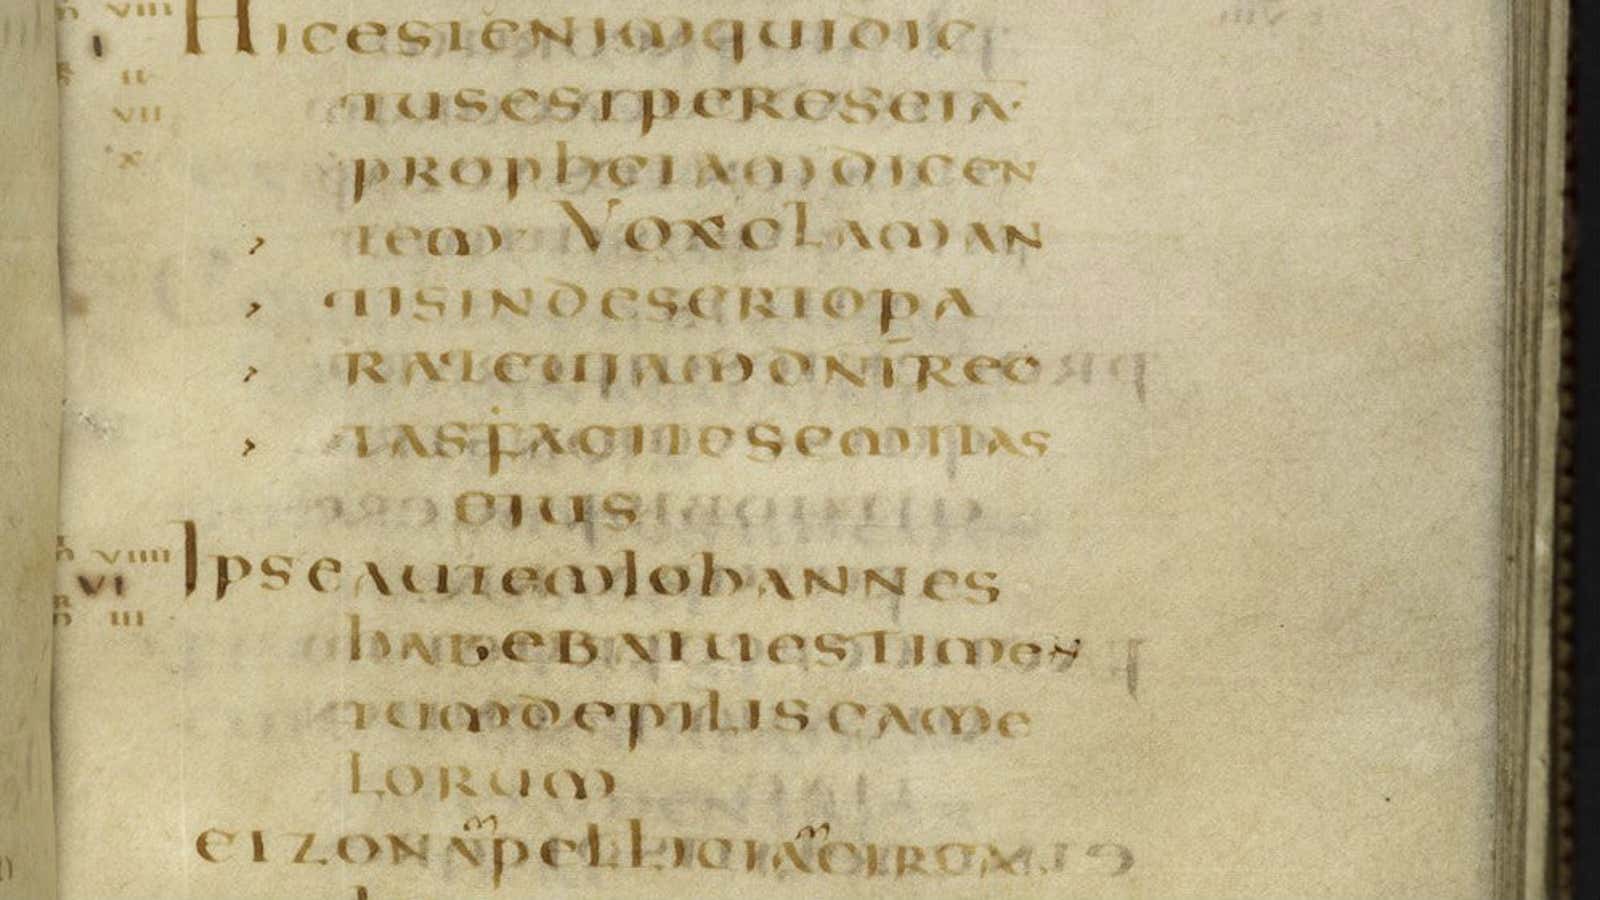 n VIII
I
II
VII
X
Hicestenimquidic
tusestpereseia
prophetamdicen
tem Voxclaman
tisindesertopa
rateuiamdnirec
tasfacitesemitas
eius
n VIIII
VI
III
IpseautemIohannes
habebatuestimen
tumdepiliscame
lorum
etzonampelliciamcirca